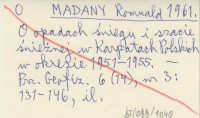 O MADANY Romuald 1961.
O opadach śniegu i szacie
śnieżnej w Karpatach Polskich
w okresie 1951-1955. —
Prz. Geofiz. 6 (14), nr 3:
131-146, il.